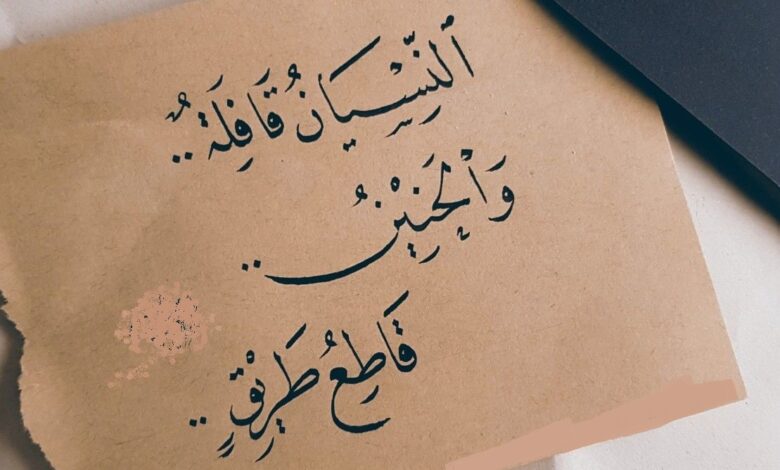 ٱلنِّسْيَانُ قَافِلَةٌ..
وَٱلْحَنِيْنُ..
قَاطِعُ طَرِيْقٍ..